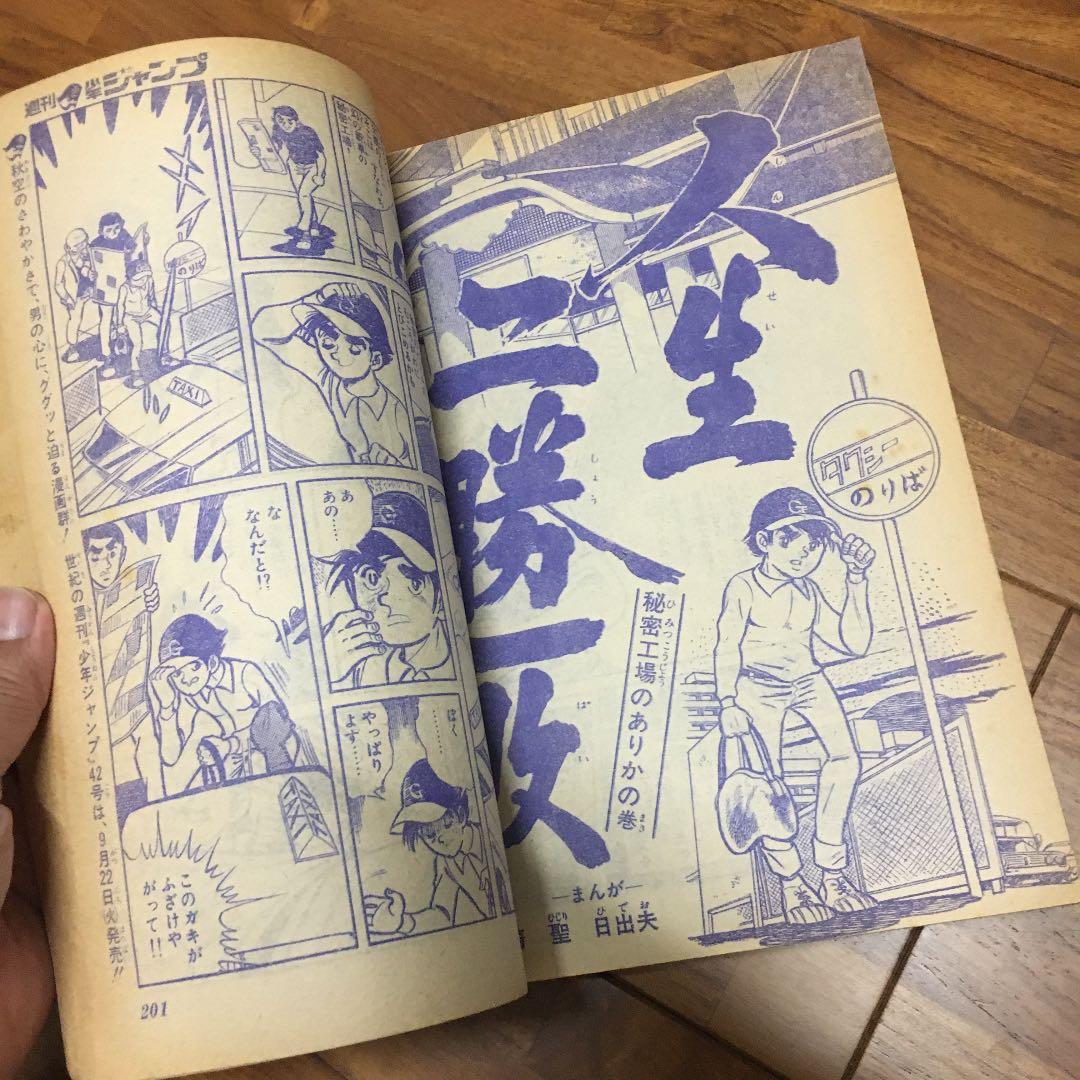 人生
二勝一敗
秘密工場のありかの巻
タクシー
のりば
―まんが―
聖 日出夫
週刊少年ジャンプ
秘密工場
のりば
TAXI
あ
あの……
な
なんだと!?
ぼく
………
やっぱり
よす……
このガキが
ふざけや
がって!!
秋空のさわやかさで、男の心に、ググッと迫る漫画群!
世紀の週刊『少年ジャンプ』42号は、9月22日(火)発売!!
201